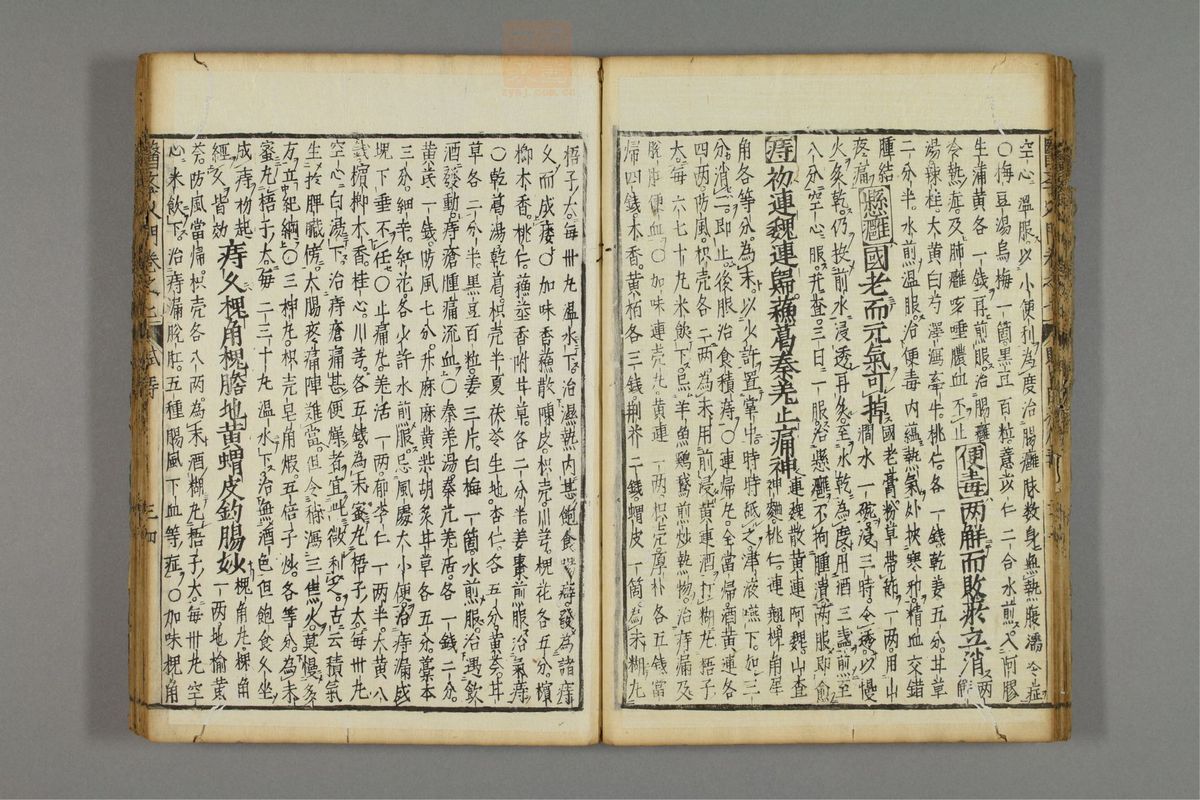 空心溫服以小便利為度治腸癰脉數身無熱腹濡冷症
〇梅豆湯烏梅一箇黑豆百粒薏苡仁二合水煎入阿膠
生蒲黃各一錢再煎服治腸癰便毒两解而敗瘀立消两解
冷熱海及肺癰咳唾膿血不止
湯桂大黃白芍澤瀉牽牛桃仁各一錢乾姜五分甘草
二分半水煎溫服治便毒內蘊熱氣外挾寒邪精血交錯
腫結懸癰國老而元氣可掉國老膏粉草帶節一两用山
疼痛澗水一碗浸三時令透以慢
火炙乾仍投前水浸透再炙至水乾為度用酒三盞煎至
入分空心服三日一服治懸癰不拘腫潰两服即愈
痔初連魏連歸蘓葛秦羌止痛神連魏散黃連阿魏山查神麯桃仁連翹犀角
角各等分為末以少許置掌中時時䑛之津液嚥下如三
分消二即止後服治食積痔〇連歸丸全當歸酒黃連各
四两防風枳壳各二两為末用前浸黃連酒打糊丸梧子
大每六七十丸米飲下忌羊魚鷄鵞煎炒熱物治痔漏及
脫肛便血〇加味連壳丸黃連一两枳壳厚朴各五錢當
歸四錢木香黃柏各三錢荆芥二錢蝟皮一箇為末糊丸
梧子大每卅丸溫水下治濕熱內甚飽食腸癖發為諸痔
久而成瘻〇加味香蘓散陳皮枳壳川芎槐花各五分檳
榔木香桃仁蘓莖香附甘草各二分半姜棗煎服治氣痔
〇乾葛湯乾葛枳壳半夏茯苓生地杏仁各五分黃芩甘
草各二分半黑豆百粒姜三片白梅一箇水煎服治遇飲
酒發動痔瘡腫痛流血〇秦羌湯秦艽羌活各一錢二分
黃芪一錢防風七分升麻麻黃柴胡炙甘草各五分藁本
三分細辛紅花各少許水煎服忌風處大小便治痔漏成
塊下垂不任〇止痛丸羌活一两郁李仁一两半大黃八
錢檳榔木香桂心川芎各五錢為末蜜丸梧子大每卅丸
空心白湯下治痔瘡痛甚便燥者宜此微利之古云積氣
生於脾臟傍大腸疼痛陣難當但令稍瀉三焦火莫慢多
方立紀綱〇三神丸枳壳皂角煅五倍子炒各等分為末
蜜丸梧子大每二三十丸溫水下治無酒色但飽食久坐
成痔初起痔久槐角槐膽地黃蝟皮釣腸妙槐角丸槐角
經久皆效一两地榆黃
芩防風當歸枳壳各八两為末酒糊丸梧子大每卅丸空
心米飲下治痔漏脫肛五種腸風下血等症〇加味槐角